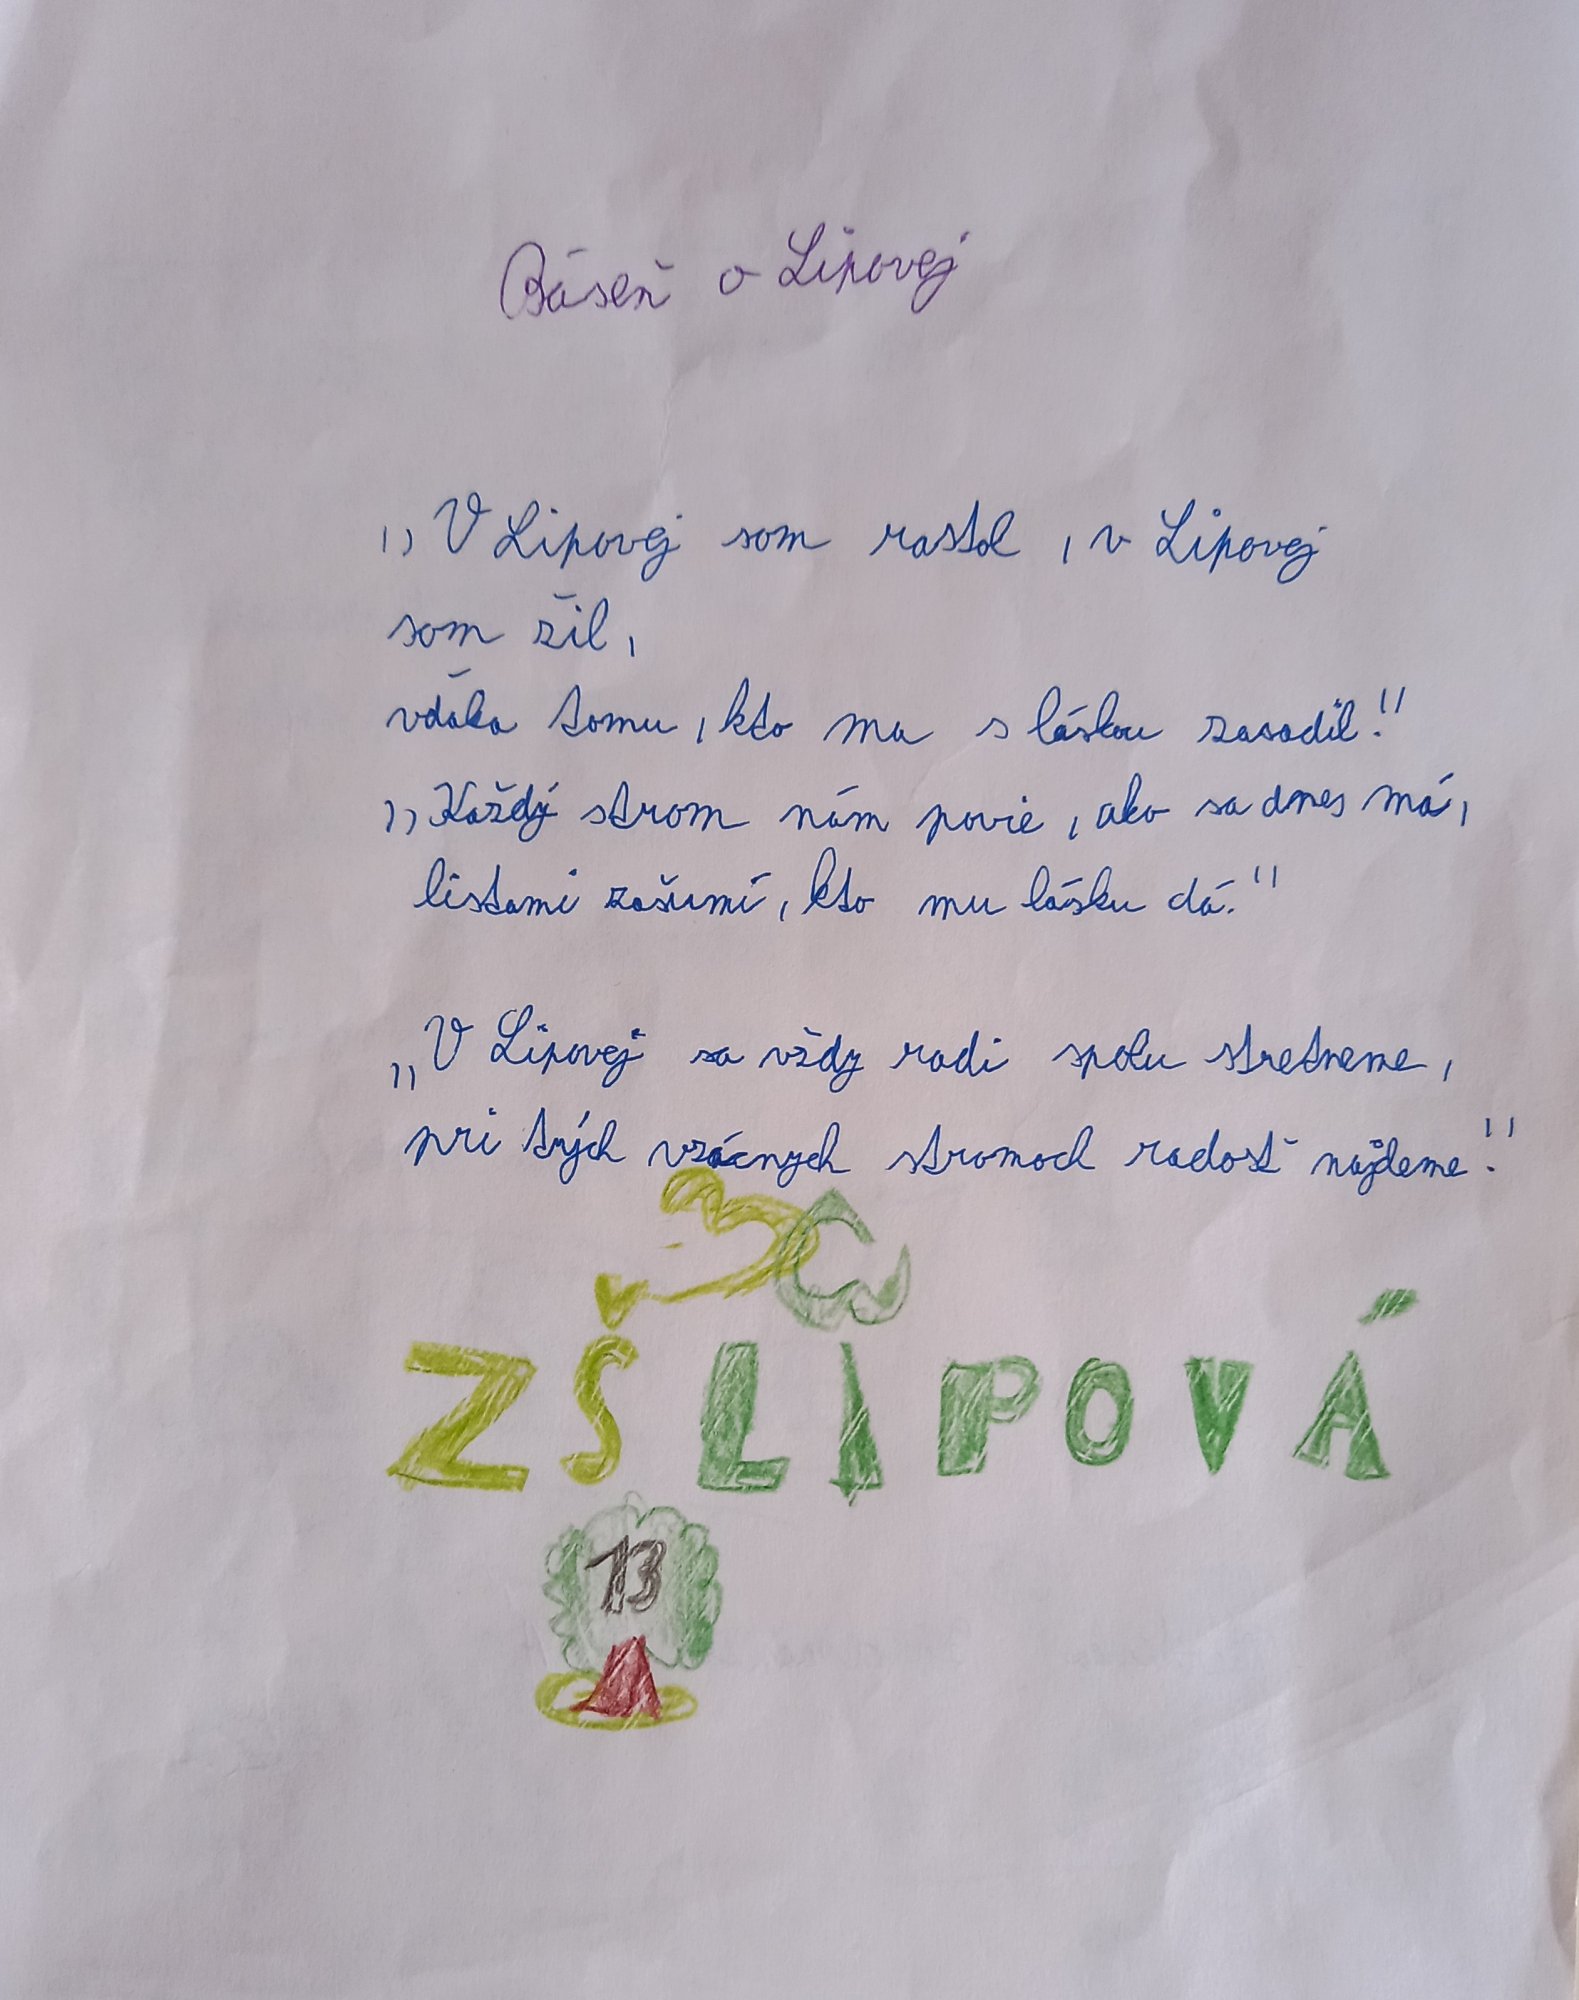 Báseň o Lipovej
„V Lipovej som rastol, v Lipovej
som žil,
vďaka tomu, kto ma s láskou zasadil."
„Každý strom nám povie, ako sa dnes má,
listami zašumí, kto mu lásku dá."
„V Lipovej sa vždy radi spolu stretneme,
pri tých vzácnych stromoch radosť nájdeme."
ZŠ LIPOVÁ
13